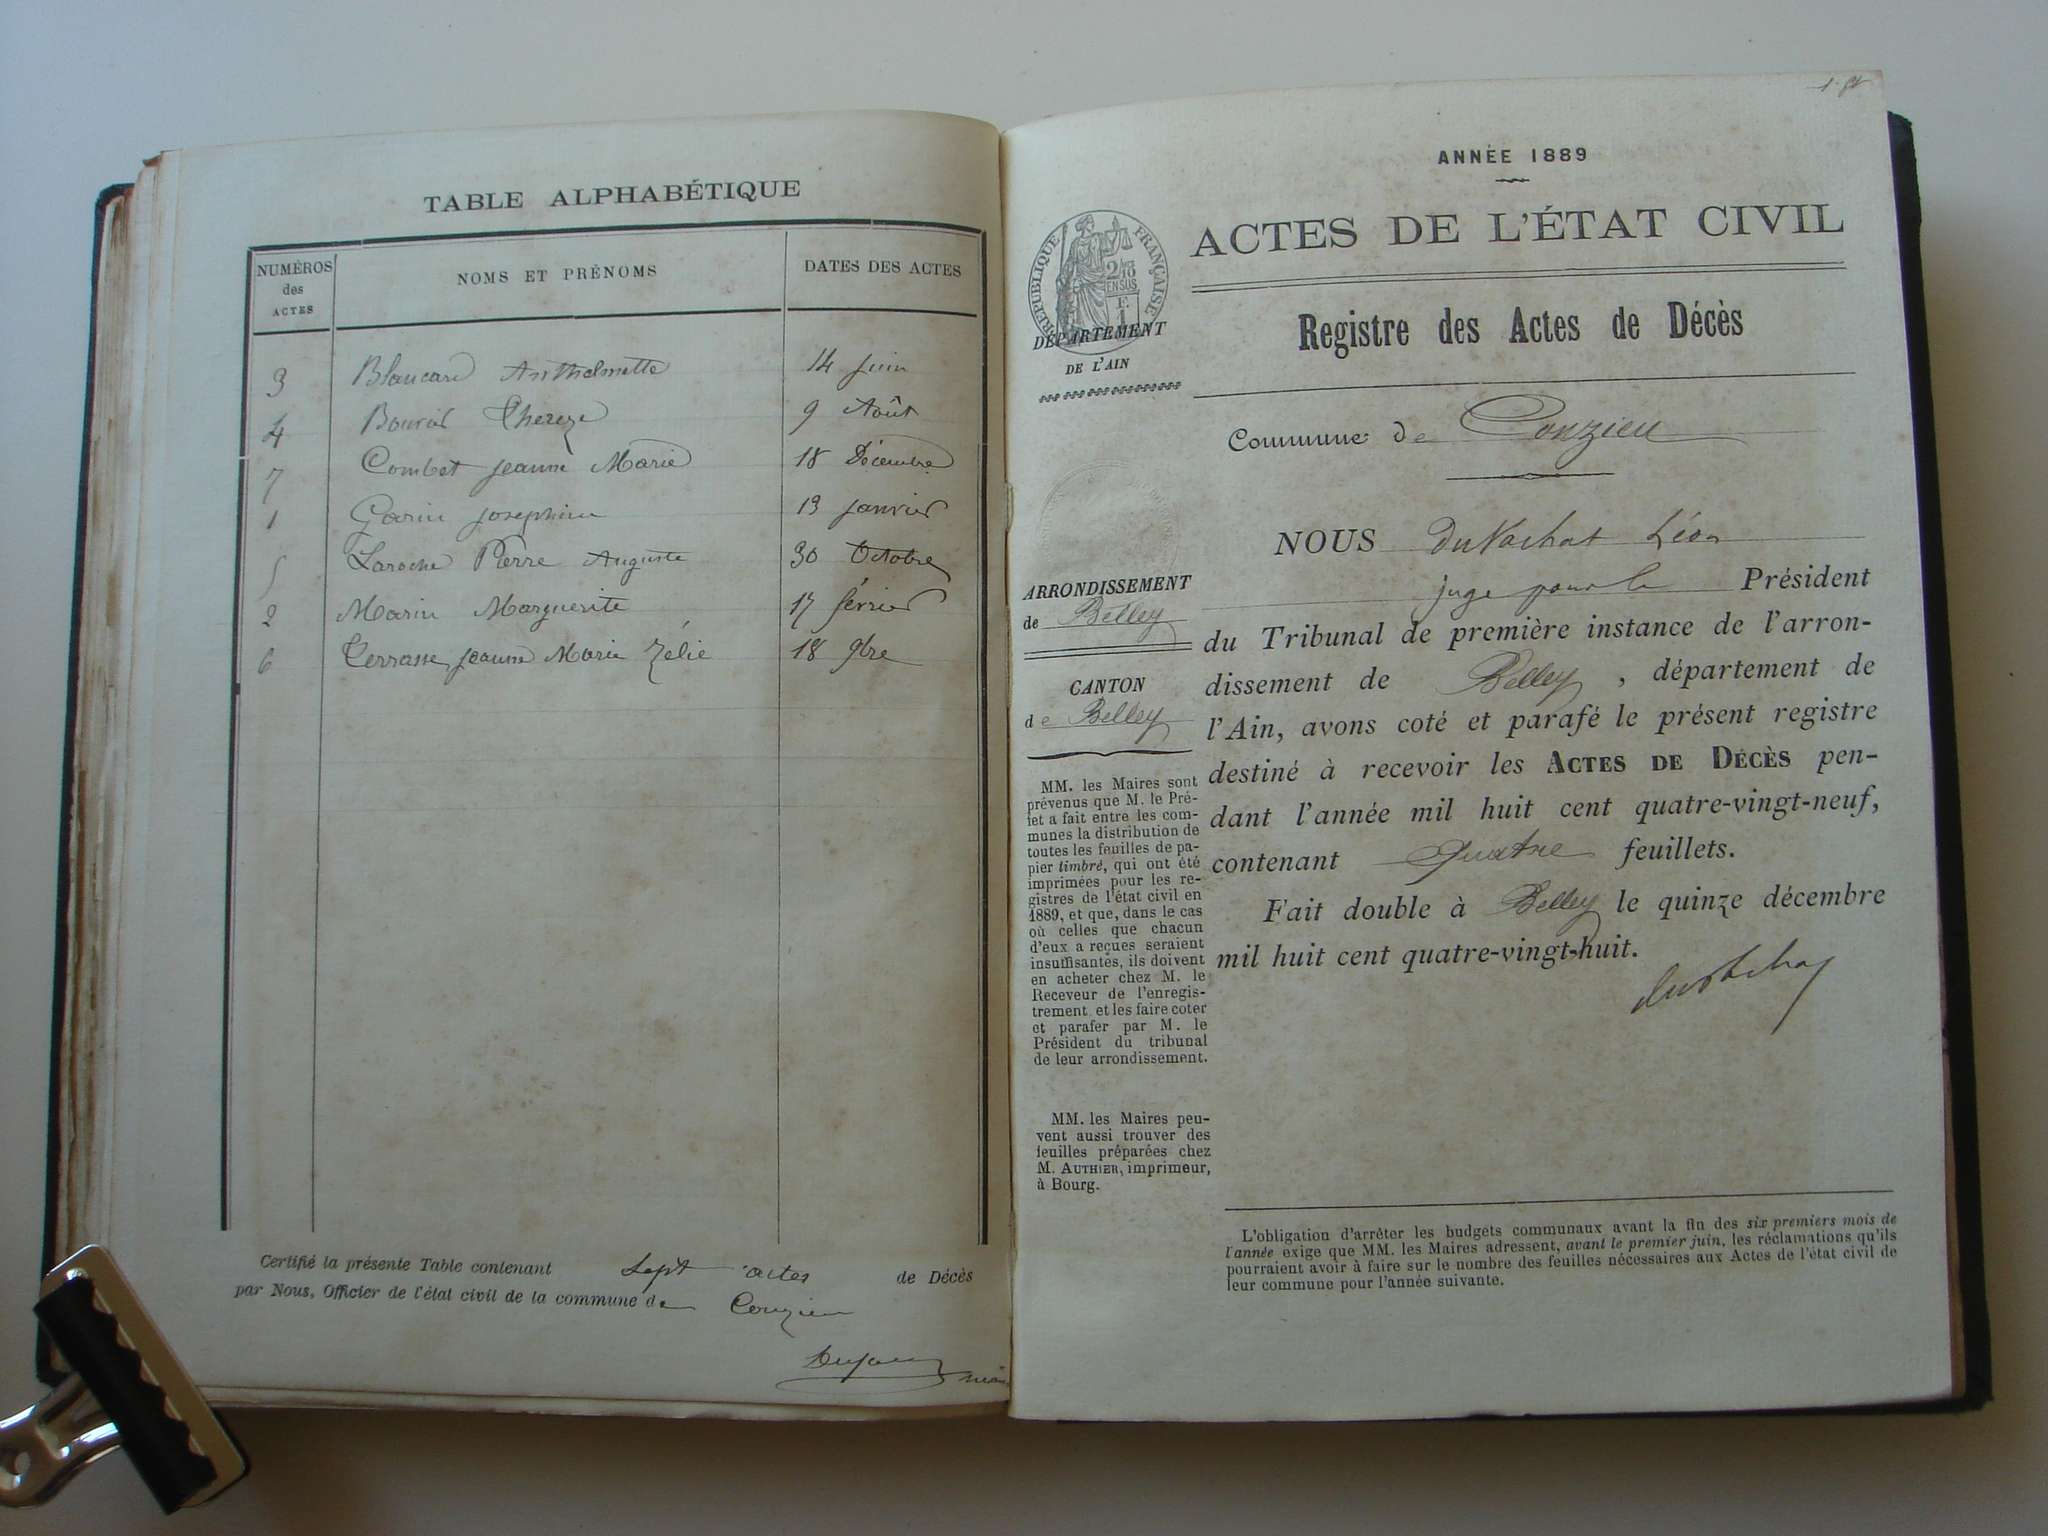 TABLE ALPHABÉTIQUE
NUMÉROS des ACTES NOMS ET PRÉNOMS DATES DES ACTES
3 Blancard Anthelmette 14 juin
4 Thereze 9 Août
7 Combet jeanne Marie 18 Décembre
1 Garin josephine 13 janvier
5 Laroche Pierre Auguste 30 Octobre
2 Marin Marguerite 17 février
6 Terrasse jeanne Marie Zélie 18 9bre
Certifié la présente Table contenant Sept actes de Décès
par Nous, Officier de l'état civil de la commune de Conzieu
ANNÉE 1889
ACTES DE L'ÉTAT CIVIL
RÉPUBLIQUE FRANÇAISE
DÉPARTEMENT
DE L'AIN
Registre des Actes de Décès
Commune de Conzieu
ARRONDISSEMENT
de Belley
CANTON
de Belley
MM. les Maires sont
prévenus que M. le Pré-
fet a fait entre les com-
munes la distribution de
toutes les feuilles de pa-
pier timbré, qui ont été
imprimées pour les re-
gistres de l'état civil en
1889, et que, dans le cas
où celles que chacun
d'eux a reçues seraient
insuffisantes, ils doivent
en acheter chez M. le
Receveur de l'enregis-
trement et les faire coter
et parafer par M. le
Président du tribunal
de leur arrondissement.
MM. les Maires peu-
vent aussi trouver des
feuilles préparées chez
M. AUTHIER, imprimeur,
à Bourg.
NOUS DuVachat Léon
juge pour le Président
du Tribunal de première instance de l'arron-
dissement de Belley, département de
l'Ain, avons coté et parafé le présent registre
destiné à recevoir les ACTES DE DÉCÈS pen-
dant l'année mil huit cent quatre-vingt-neuf,
contenant Quatre feuillets.
Fait double à Belley le quinze décembre
mil huit cent quatre-vingt-huit.
L'obligation d'arrêter les budgets communaux avant la fin des six premiers mois de
l'année exige que MM. les Maires adressent, avant le premier juin, les réclamations qu'ils
pourraient avoir à faire sur le nombre des feuilles nécessaires aux Actes de l'état civil de
leur commune pour l'année suivante.